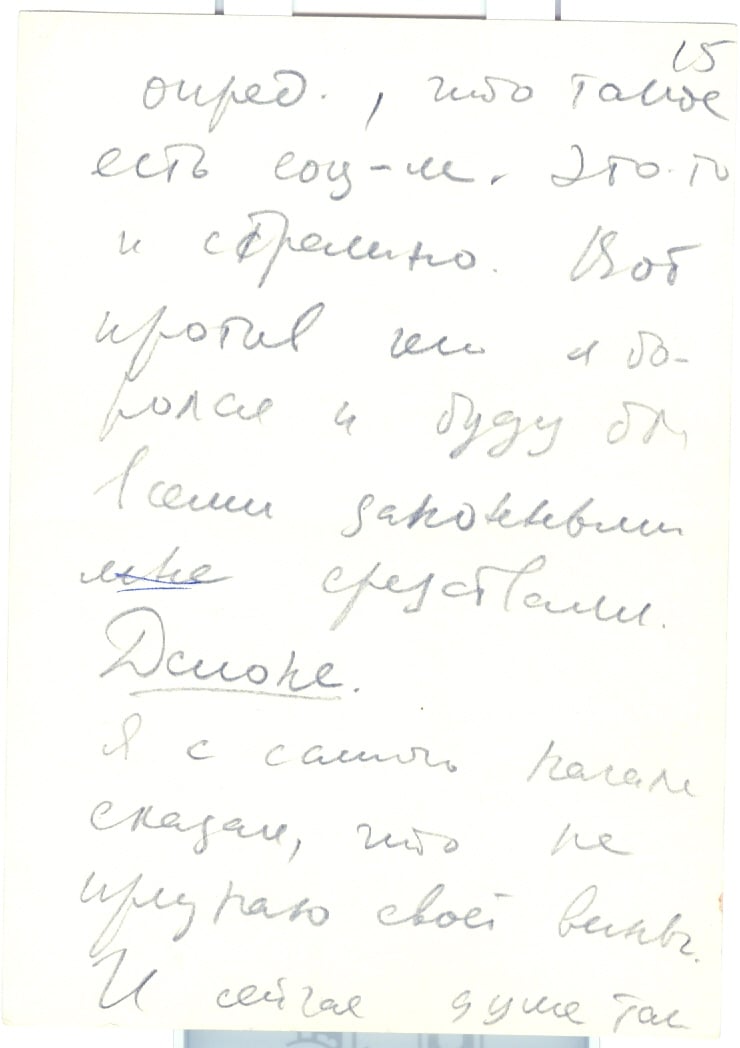 15
опред., что такое
есть соц-м. Это-то
и страшно. Вот
против и я бо-
ролся и буду
всеми законными
мне средствами.
Далее.
Я с самого начала
сказал, что не
признаю своей вины.
И сейчас думаю так